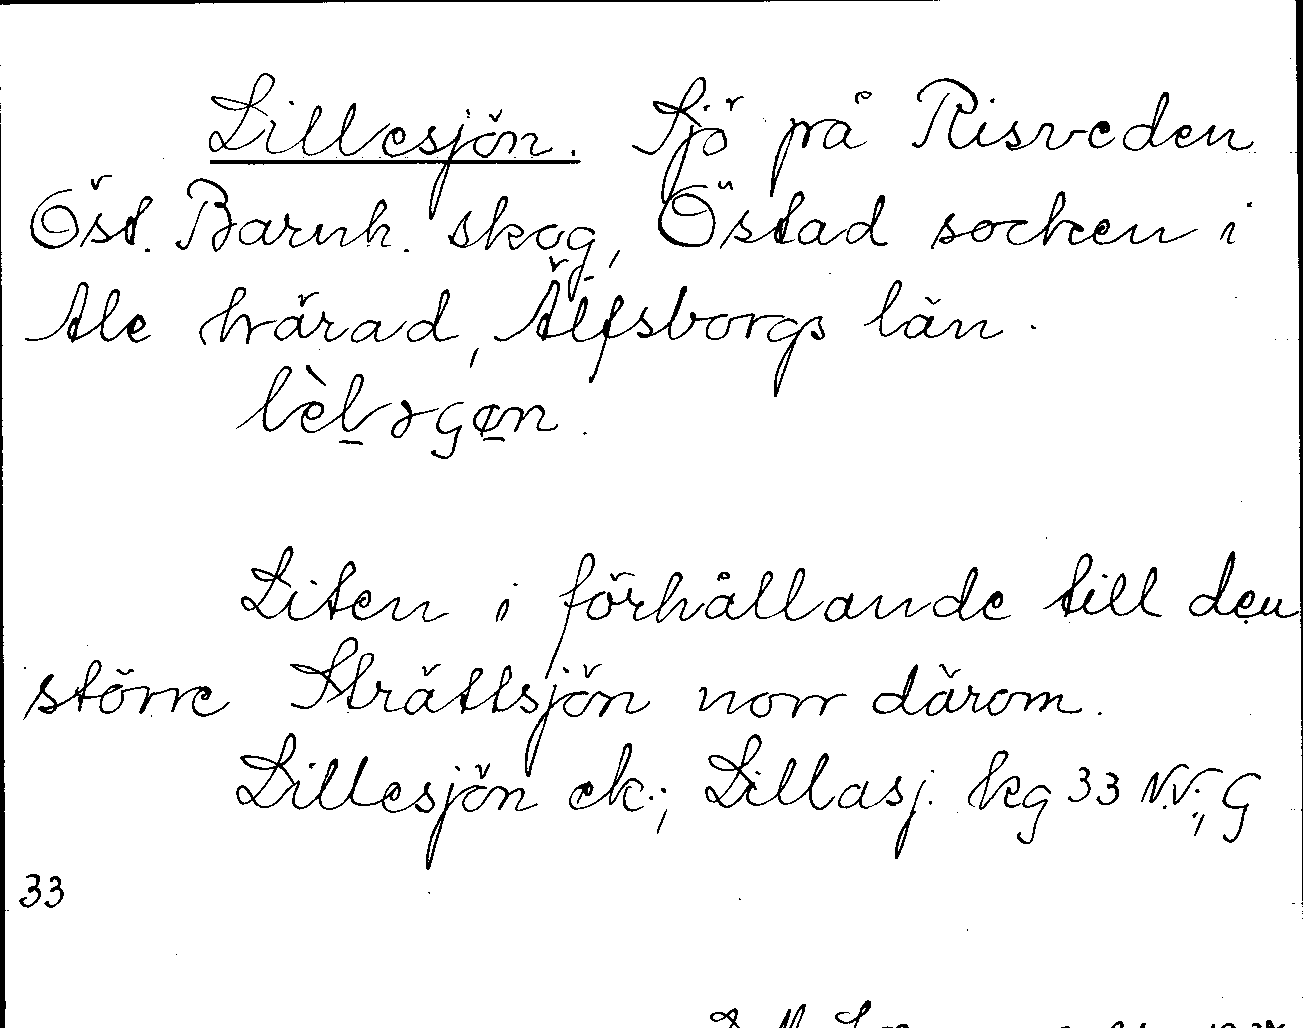 Lillesjön. Sjö på Risveden
Öst. Barnh. skog, Östad socken i
Ale härad, Älfsborgs län.
Liten i förhållande till den
större Strättsjön norr därom.
Lillesjön ek.; Lillasj. kg 33 N.V.; G
33